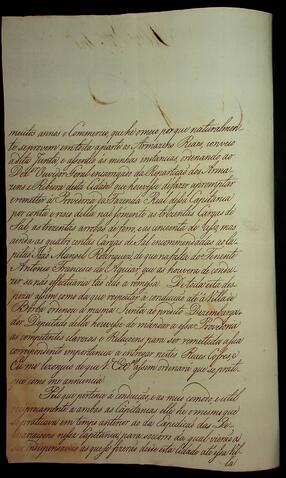 muitos annos o Commercio, que he o meio porque naturalmen-
te se provem em toda a parte os Armazens Reaes, conveio
a dita Junta, e assentio ás minhas instancias, ordenando ao
Dez.or Ouvidor Geral encarregado da Repartição dos Arma-
zens e Ribeira desta Cidade que houvesse de fazer apromptar
e remetter á Provedoria da Fazenda Real dessa Capitania
por conta e risco della não somente as trezentas Cargas de
Sal, as trezentas arrobas de ferro, e as cincoenta de Aço, mas
ainda as quatro centas Cargas de Sal encommendadas ao Ca-
pitão Paz Manoel Rodrigues, de que na falta do Tenente
Antonio Francisco de Aguiar, que as houvera de condu-
zir se não effeituaria tão cedo a remessa. De toda esta des-
peza assim como da que respeitar a conducção até á Villa de
Borba ordenou a mesma Junta ao predito Dezembarga-
dor Deputado della houvesse de mandar a essa Provedoria
as competentes clarezas e Relaçoens para ser remettida a sua
correspondente importancia a entregar nestes Reaes Cofres, e
Eu me lizongeo de que V. Ex.ª assim ordenará que se prati-
que como me annuncia.
Pelo que pertence á conducção, e ao mais comodo, e util
reciprocamente a ambas as Capitanias ella he o mesmo que
se praticava em tempo anterior ao da Expedição das De-
marcaçoens nessa Capitania para socorro da qual vierão a
ser indispensaveis as que se fizerão desta Cidade até essa Vil-
la